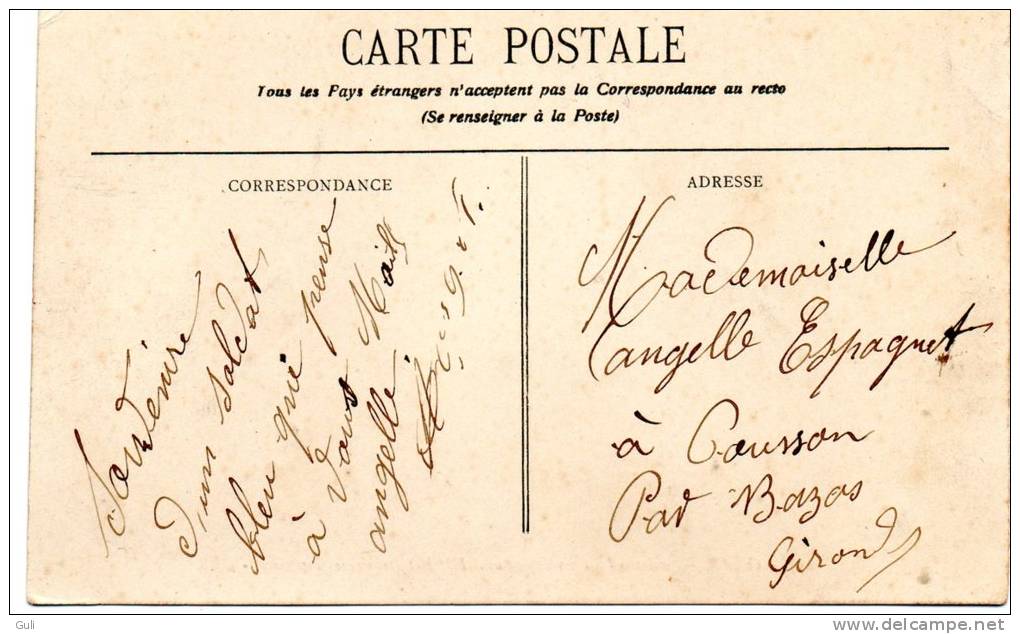 CARTE POSTALE
Tous les Pays étrangers n'acceptent pas la Correspondance au recto
(Se renseigner à la Poste)
CORRESPONDANCE
Souvenire
d'un soldat
bleu qui pense
à Vous
angelle
ADRESSE
Mademoiselle
angelle Espagnet
à Cousson
Par Bazas
Girond
Guli
delcampe.net